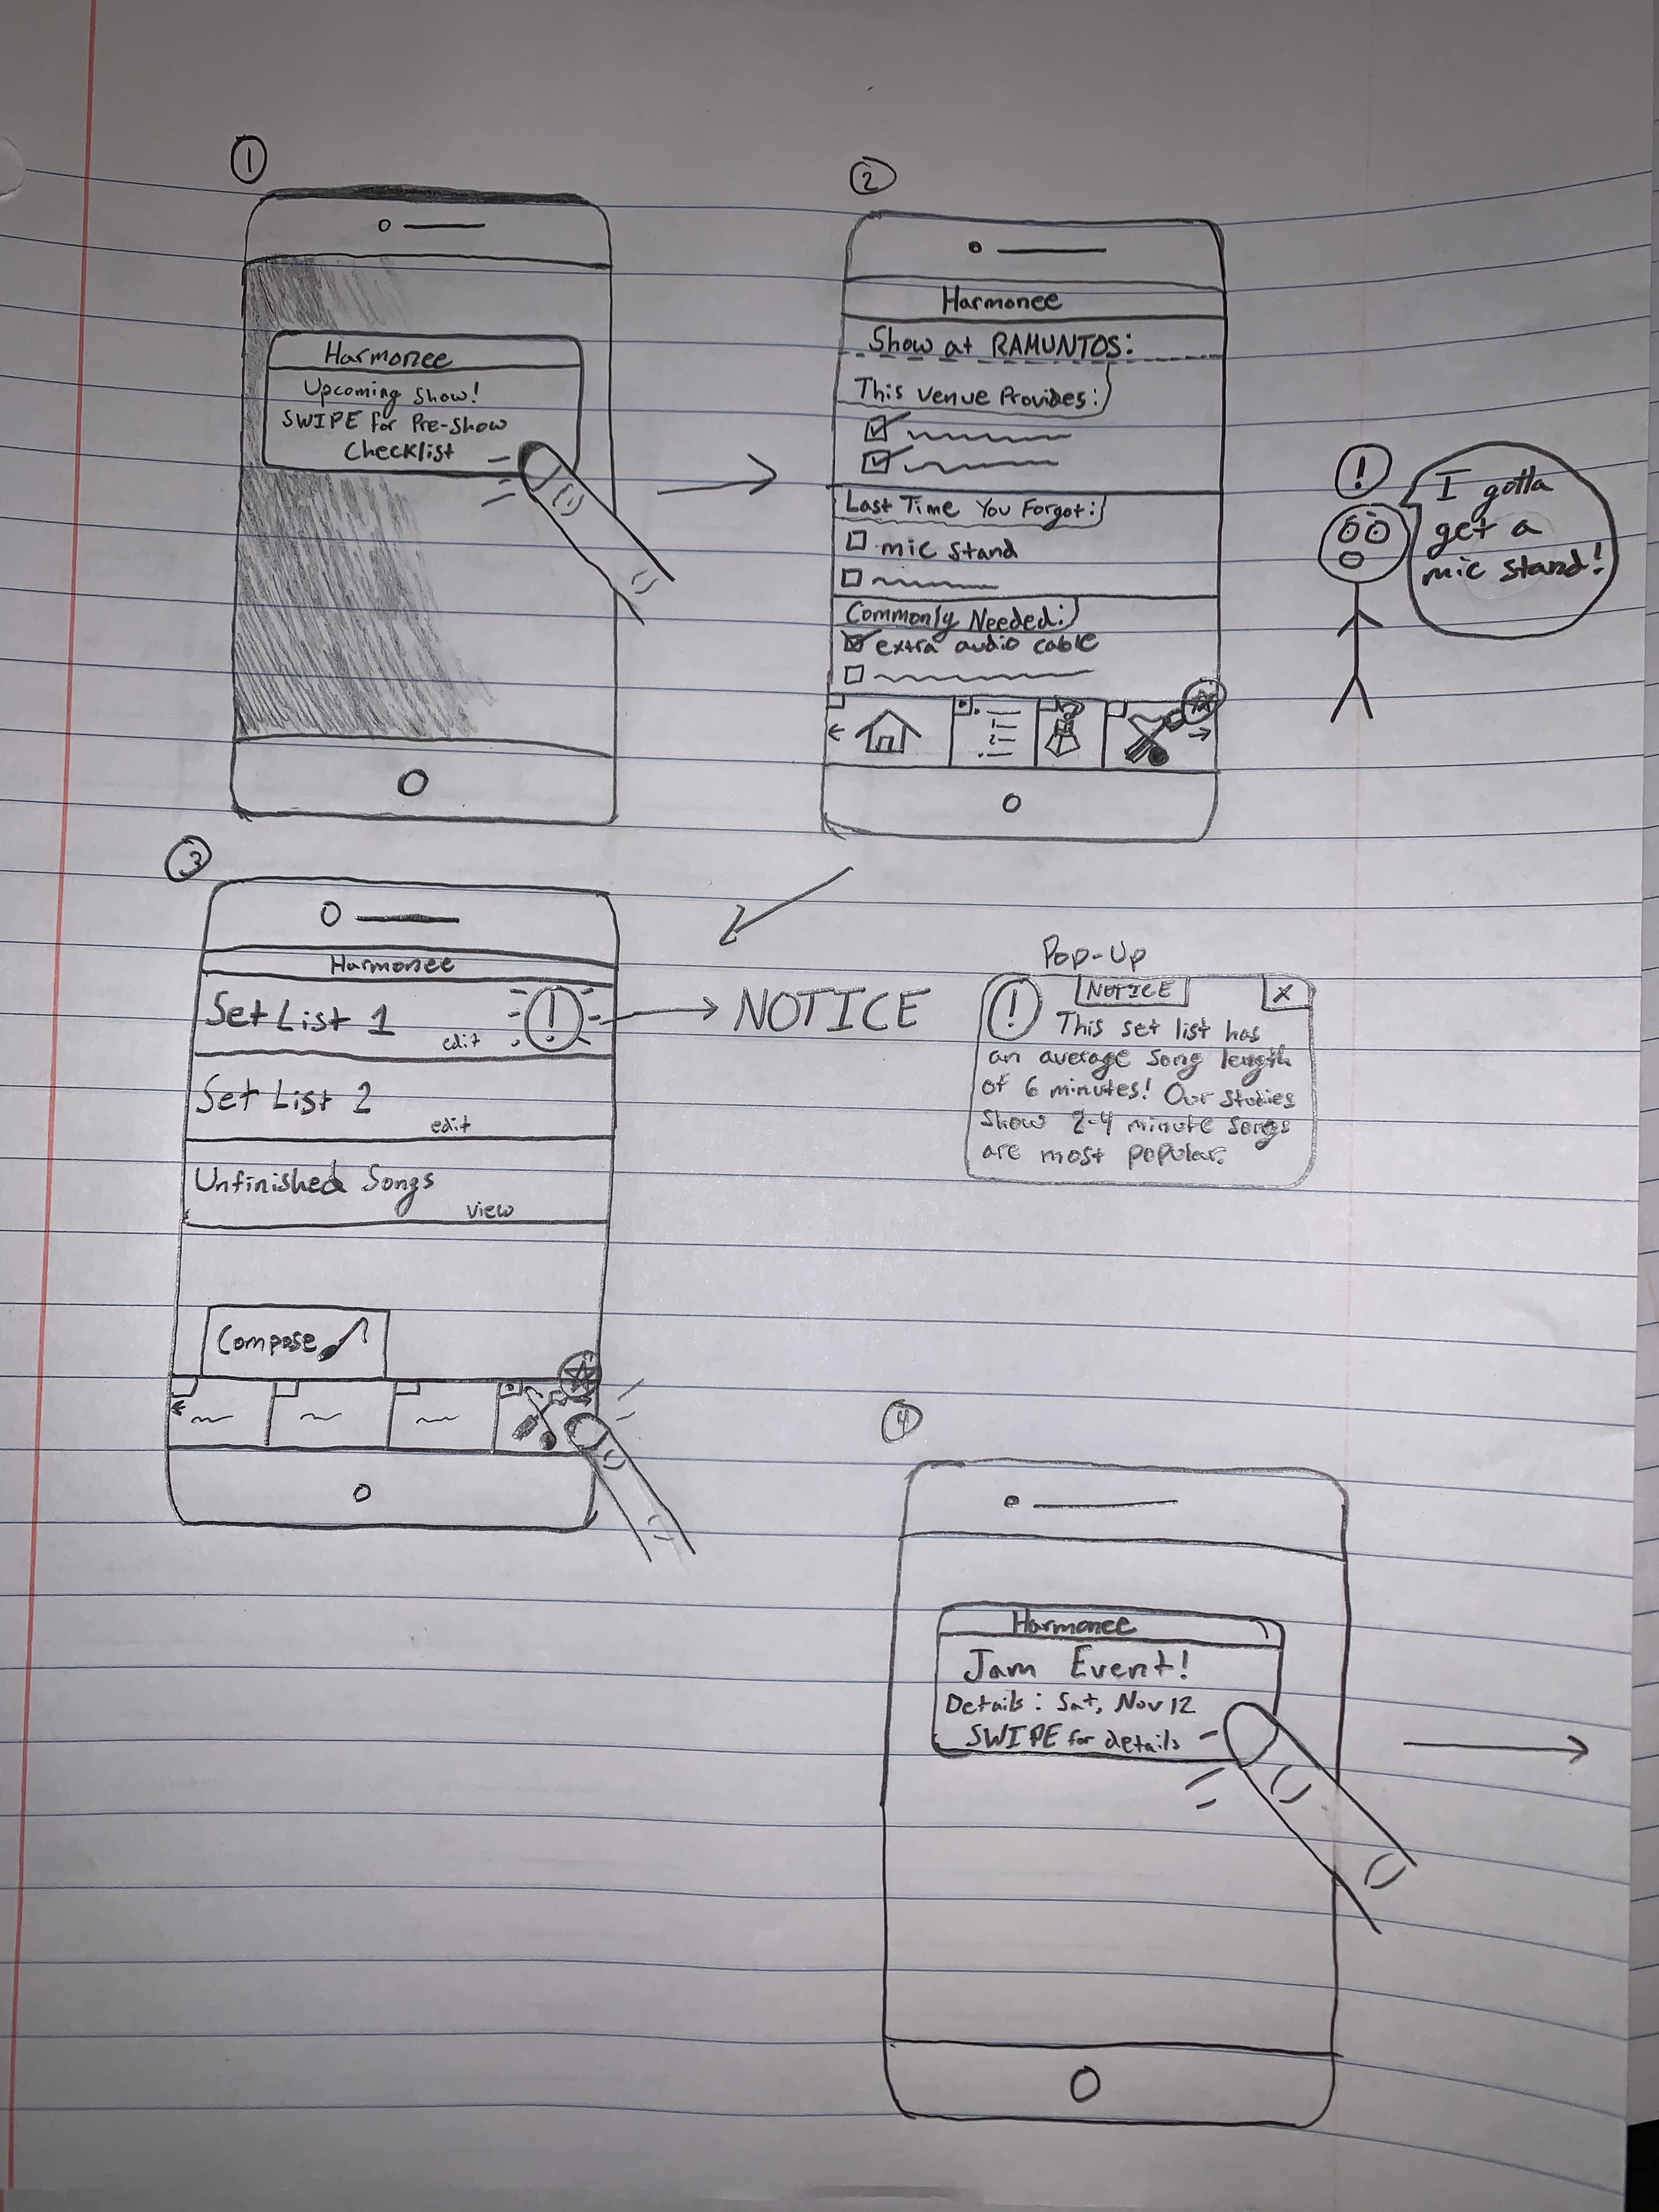 1
Harmonee
Upcoming Show!
SWIPE for Pre-Show
Checklist
2
Harmonee
Show at RAMUNTOS:
This Venue Provides:
Last Time You Forgot:
mic stand
Commonly Needed:
extra audio cable
!
I gotta
get a
mic stand!
3
Harmonee
Set List 1
edit
!
NOTICE
Set List 2
edit
Unfinished Songs
view
Compose
Pop-Up
! NOTICE X
This set list has
an average song length
of 6 minutes! Our studies
show 2-4 minute songs
are most popular.
4
Harmonee
Jam Event!
Details: Sat, Nov 12
SWIPE for details